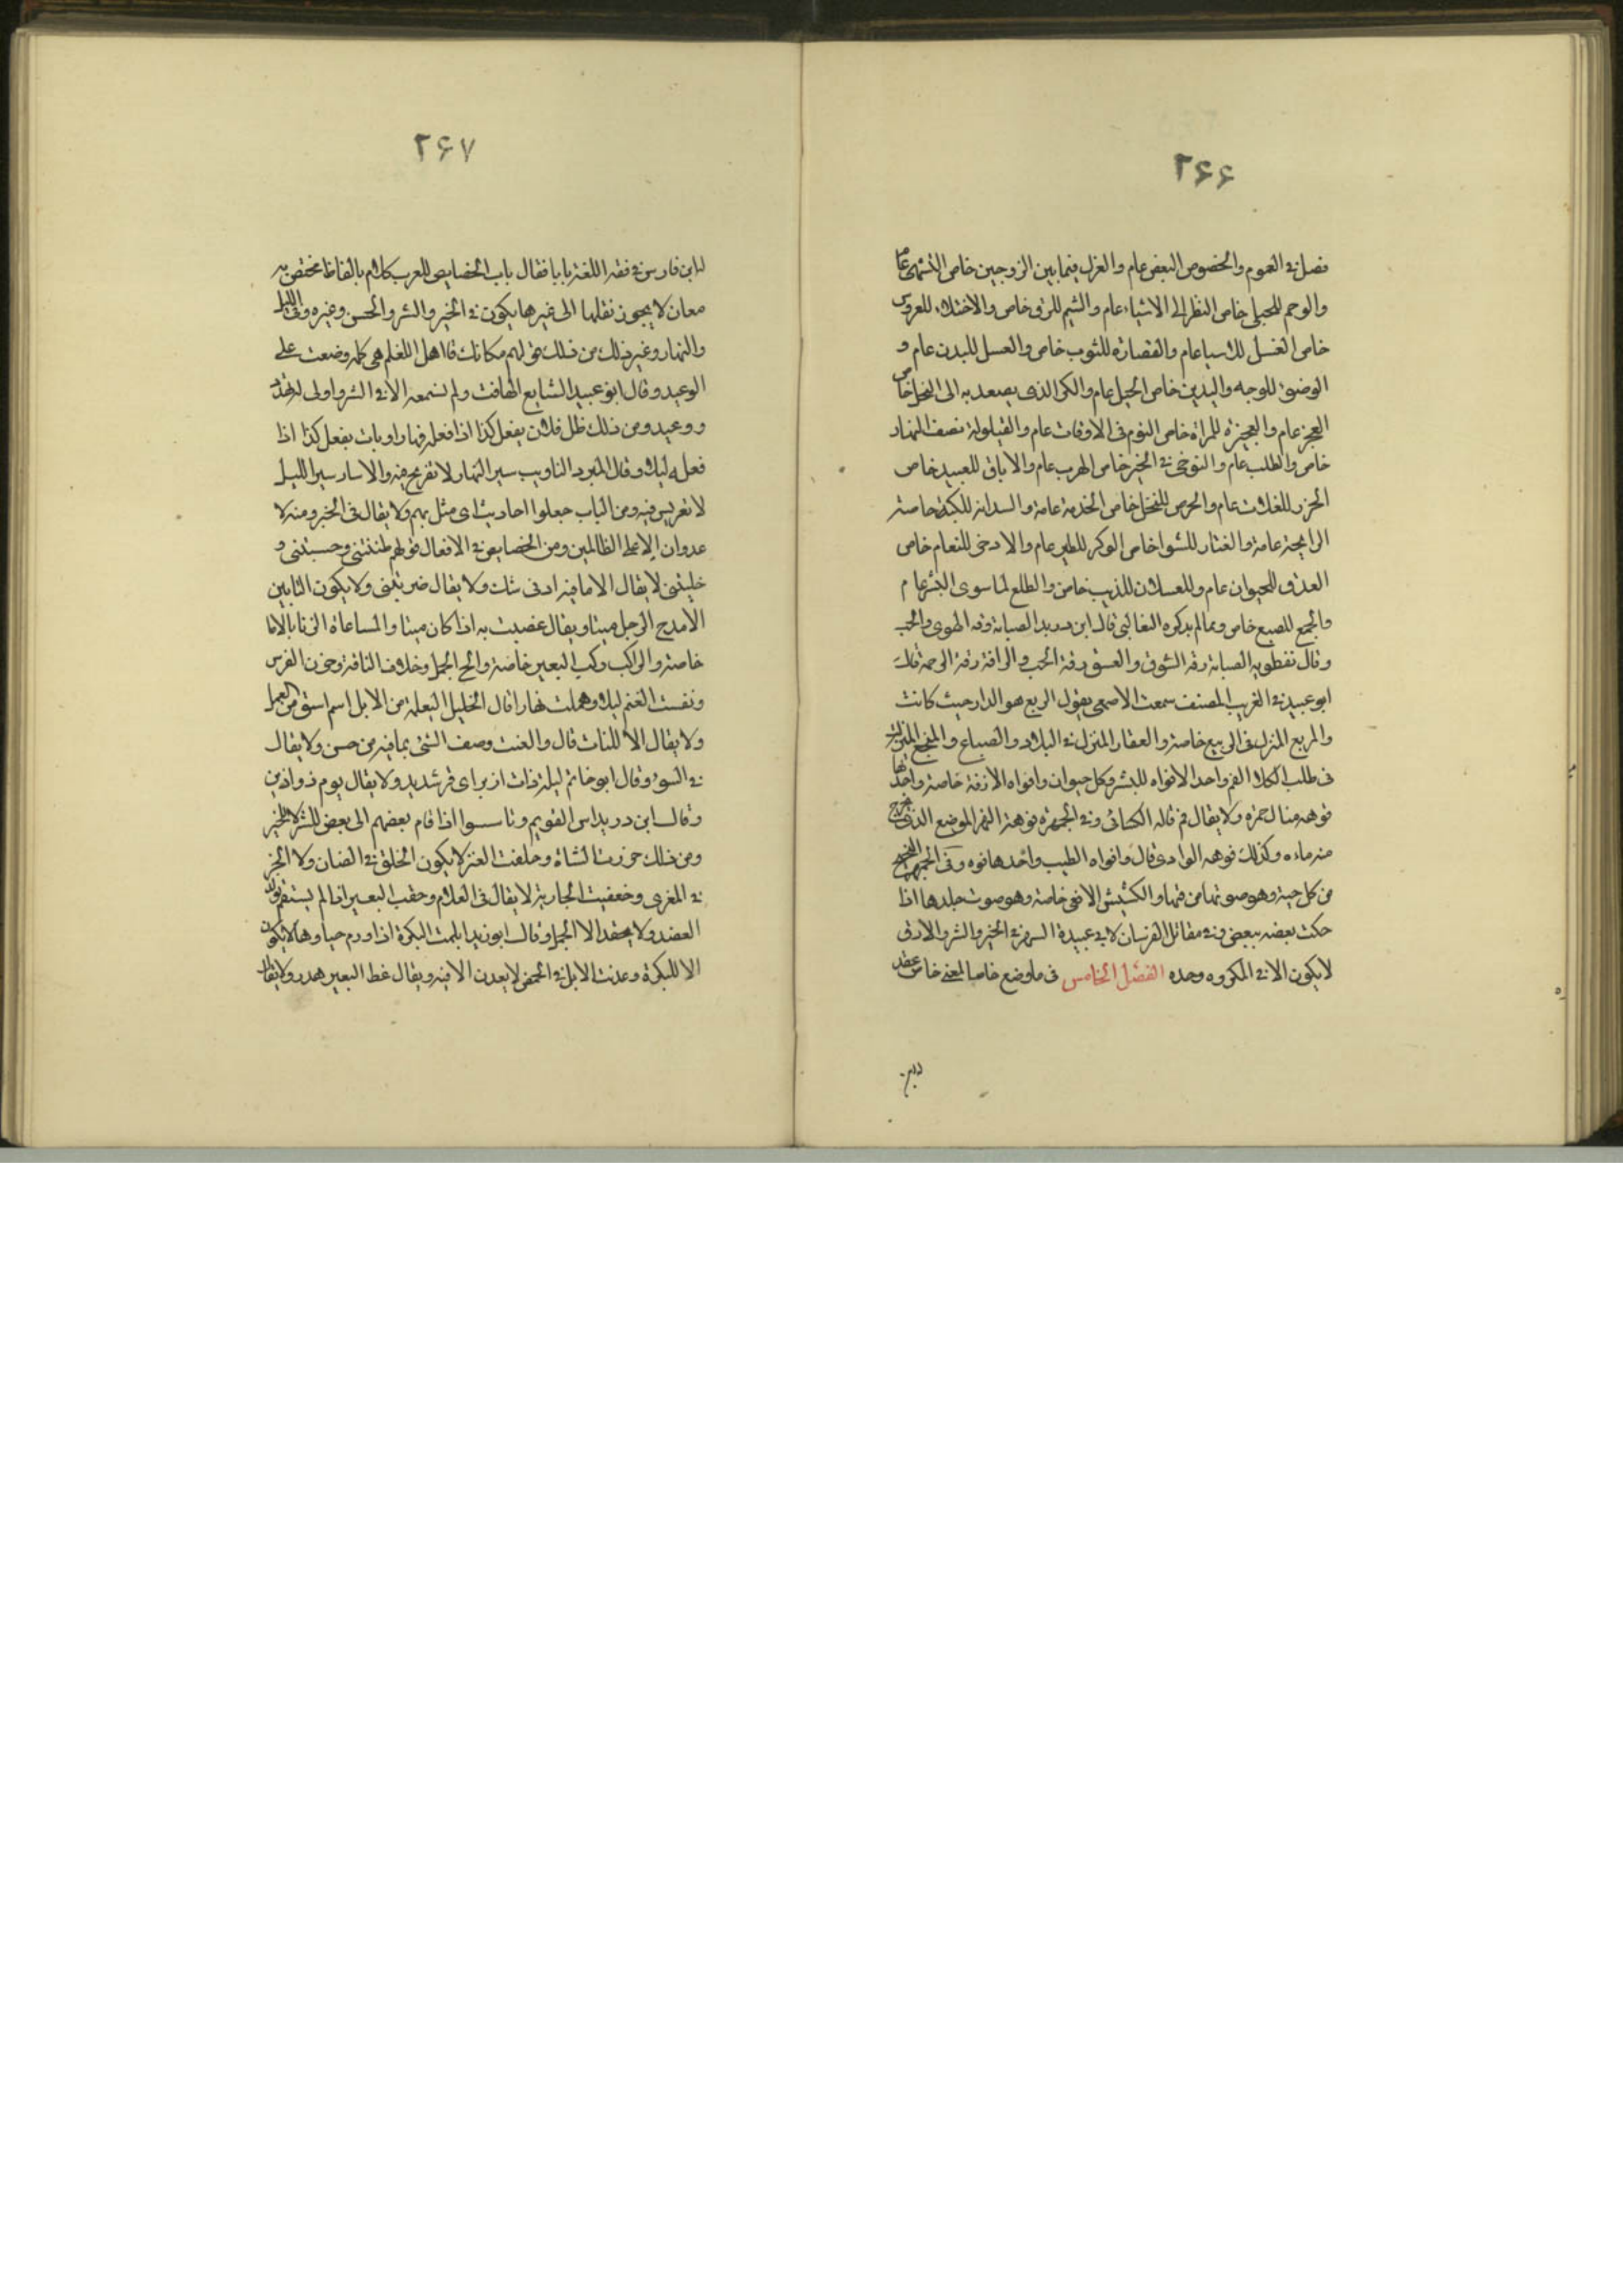 ٢۶۶
فصل في العموم والخصوص البغض عام والغزل فيما بين الزوجين خاص التشهى عام
والوحم للحبلى خاص النظر الى الاشياء عام والشيم للبرق خاص والاجتلاء للعروس
خاص الغسل للاشيا عام والقصارة للثوب خاص والغسل للبدن عام و
الوضوء للوجه واليدين خاص الحبل عام والكر الذى يصعد به الى النخل خاص
العجز عام والعجيزة للمراة خاص النوم فى الاوقات عام والقيلولة نصف النهار
خاص والطلب عام والتوخى في الخير خاص الهرب عام والاباق للعبيد خاص
الحزر للغلات عام والخرص للنخل خاص الخدمة عامة والسدانة للكعبة خاصة
الرايحة عامة والقتار للشوا خاص الوكر للطير عام والادحى للنعام خاص
العدو للحيوان عام وللعسلان للذيب خاص والظلع لما سوى البشر عام
والجمع للضبع خاص ومما لم يذكره الثعالبى قال ابن دريد الصبابة رقه الهوى والحب
وقال نفطويه الصبابة رقة الشوق والعشق رقة الحب والرافة رقة الرحمة قال
ابو عبيد في الغريب المصنف سمعت الاصمعى يقول الربع هو الدار حيث كانت
والمربع المنزل فى الربيع خاصة والعقار المنزل في البلاد والضياع والمنتجع المنزل
فى طلب الكلاء الفم واحد الافواه للبشر وكل حيوان وافواه الازقة خاصة واحدتها
فوهه مثال حمرة ولا يقال فم قاله الكسائى وفي الجمهرة فوهة النهر الموضع الذى يخرج
منه ماءه وكذلك فوهه الوادى قال وافواه الطيب واحدها فوه وفى الجمهرة الفحيح
من كل حية وهو صوتها من فمها والكشيش الافعى خاصة وهو صوت جلدها اذا
حكت بعضه ببعض وفي مقاتل الفرسان لابي عبيدة السهم في الخير والشر والارق
لا يكون الا في المكروه وحده الفصل الخامس فى ما وضع خاصا لمعنى خاص عقد
٢۶٧
لابن فارس في فقه اللغة بابا فقال باب الخصايص للعرب كلام بالفاظ مختص به
معان لا يجوز نقلها الى غيرها يكون في الخير والشر والحسن وغيره وفى الليل
والنهار وغير ذلك من ذلك قولهم مكانك قا اهل العلم هى كلمه وضعت على
الوعيد وقال ابو عبيد الشايع التهافت ولم نسمعه الا في الشر واولى له تهدد
ووعيد ومن ذلك ظل فلان يفعل كذا اذا فعله نهارا وبات يفعل كذا اذا
فعله ليلا وقال المبرد التاويب سير النهار لا تعريج فيه والاسار سير الليل
لا تعريس فيه ومن الباب جعلوا احاديث اى مثل بهم ولا يقال فى الخير ومنه لا
عدوان الا على الظالمين ومن الخصايص في الافعال قولهم ظننتنى وحسبتنى و
خلتنى لا يقال الا ما فيه ادنى شك ولا يقال ضربتنى ولا يكون التابين
الا مدح الرجل ميتا ويقال غضبت به اذا كان ميتا والمساعاة الزنا بالاما
خاصة والراكب ركب البعير خاصة والح الجمل وخلات الناقة وحرن الفرس
ونفشت الغنم ليلا وهملت نهارا قال الخليل اليعملة من الابل اسم اشتق من العمل
ولا يقال الا للاناث قال والنعت وصف الشى بما فيه من حسن ولا يقال
في السوء وقال ابو حاتم ليلة ذات ازيز اى قر شديد ولا يقال يوم ذو ازيز
وقال ابن دريد اس القوم وتاسسوا اذا قام بعضهم الى بعض للشر لا للخير
ومن ذلك جززت الشاة وحلقت العنز لا يكون الحلق في الضان ولا الجز
في المعزى وخفضت الجارية لا يقال فى الغلام وحقب البعير اذا لم يستقم بوله
لقصد ولا يحقب الا الجمل وقال ابو زيد ابلمت البكرة اذا ورم حياوها لا يكون
الا للبكرة وعدنت الابل في الحمض لا يعدن الا فيه ويقال غط البعير هدر ولا يقال